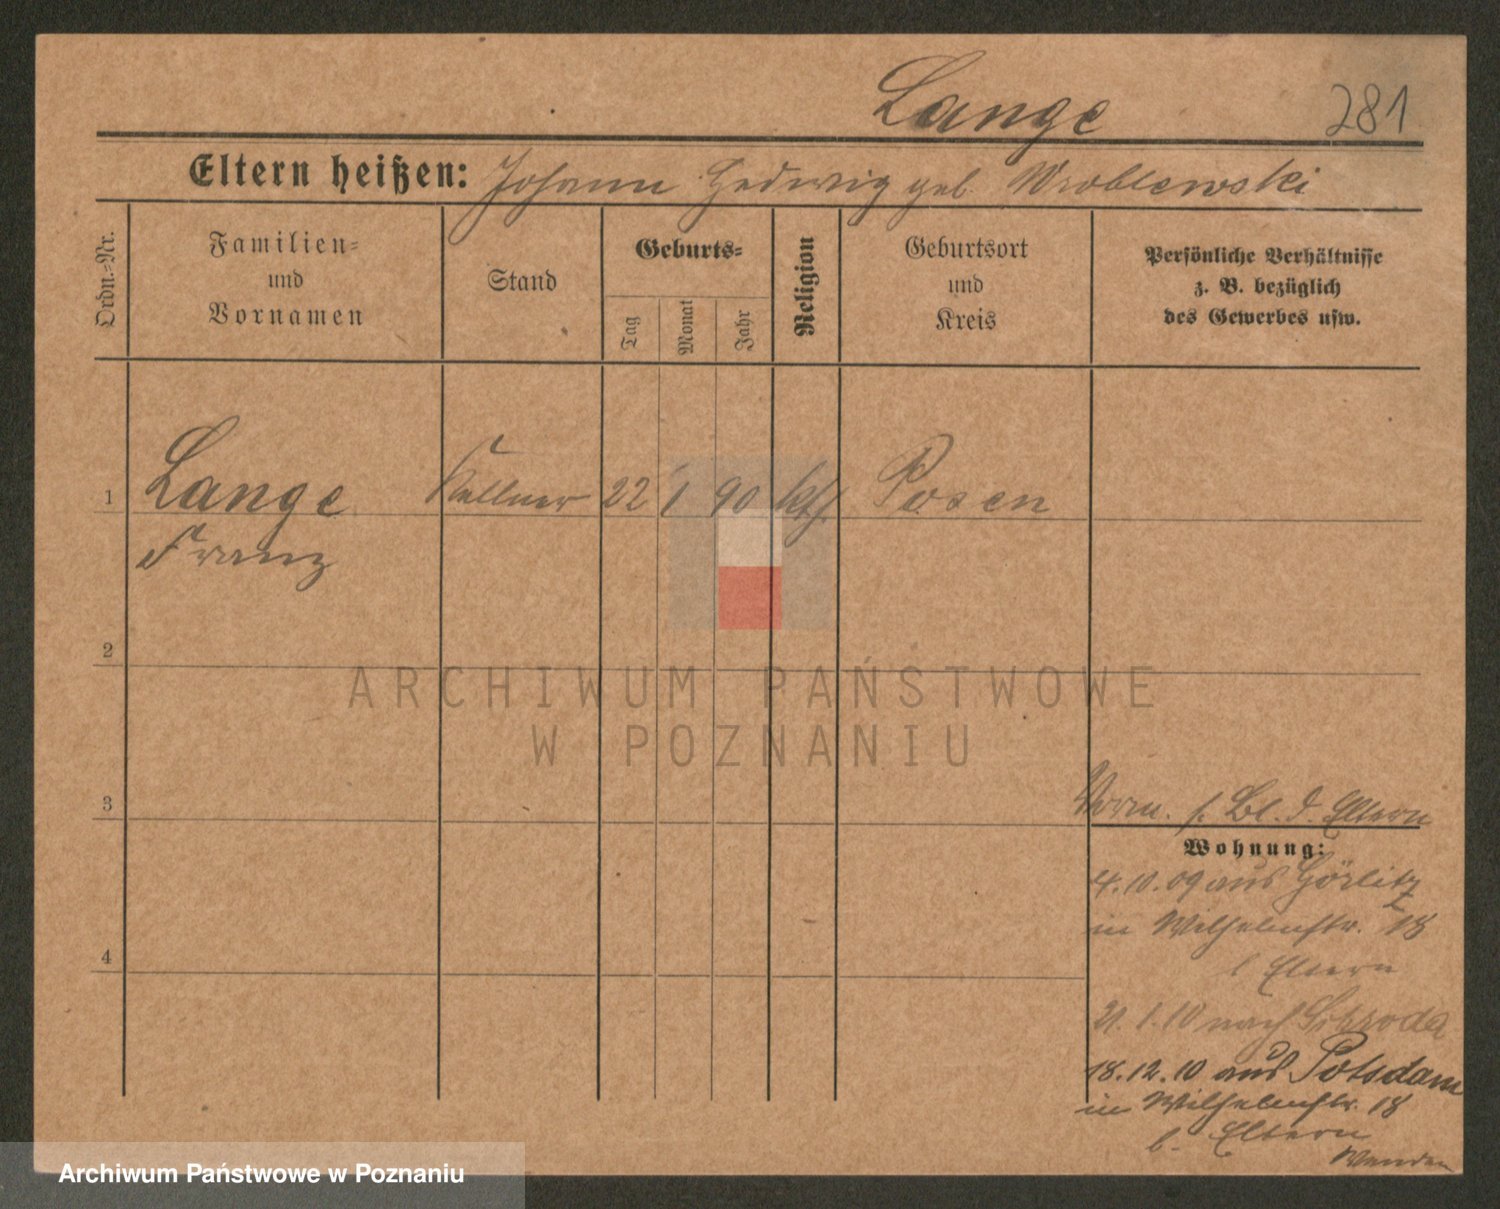 Lange 281
Eltern heißen: Johann Hedwig geb. Wroblewski
Ordn.=Nr.
Familien=
und
Vornamen
Stand
Geburts=
Tag
Monat
Jahr
Religion
Geburtsort
und
Kreis
Persönliche Verhältnisse
z. B. bezüglich
des Gewerbes usw.
1 Lange Kellner 22 1 90 kth. Posen
Franz
2
3
Vorm. s. Bl. d. Eltern
Wohnung:
4.10.09 aus Görlitz
in Wilhelmstr. 18
b Eltern
4
21.1.10 nach Schroda
18.12.10 aus Potsdam
in Wilhelmstr. 18
b. Eltern
Wenden
ARCHIWUM PAŃSTWOWE
W POZNANIU
Archiwum Państwowe w Poznaniu